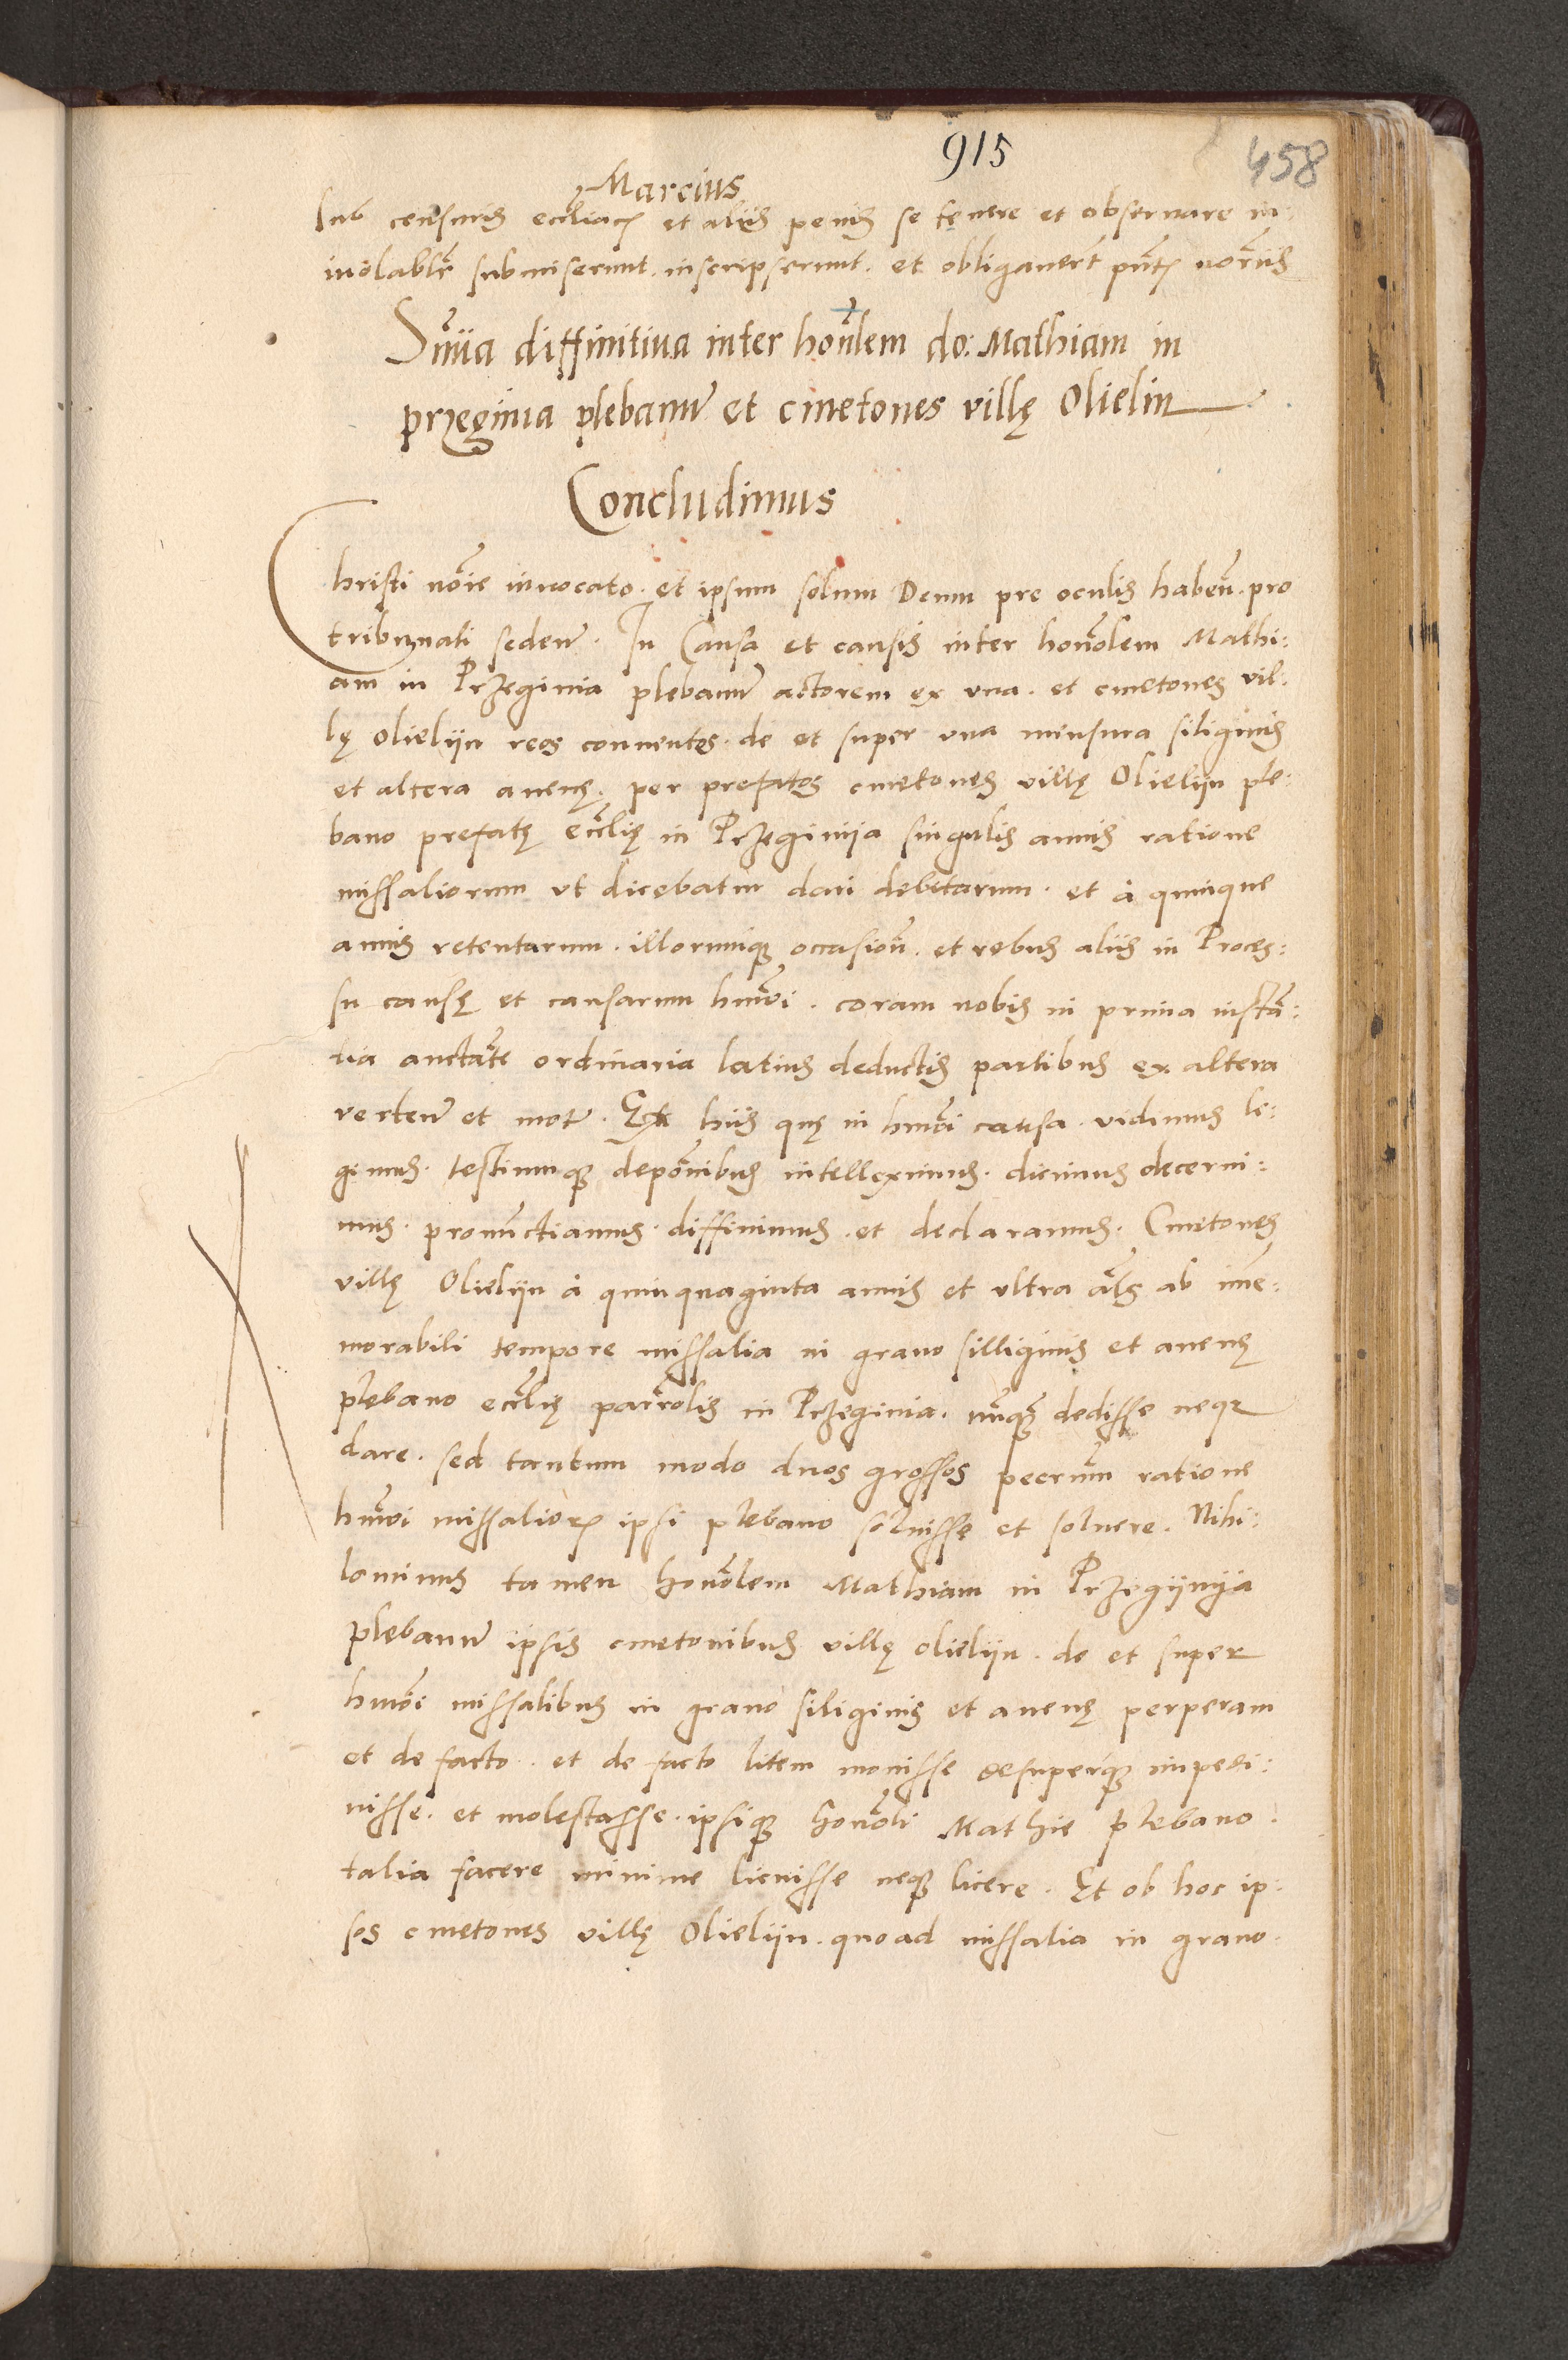 915
458
Marcius
sub censuris eccliac et aliis penis se tenere et observare in:
violablr submiserunt. inscripserunt. et obligavert pnt norriis
Snia diffinitiva inter honlem do: Mathiam in
przeginia plebanu et cmetones villę Olielin
Concludimus
Christi noie invocato. et ipsum solum Deum pre oculis haben. pro
tribunali seden. In Causa et causis inter honolem Mathi:
am in Przeginia plebanu actorem ex vna. et cmetones vil:
lę Olieliin reos conventos. de et super vna mensura siliginis
et altera avenę. per prefatos cmetones villę Olieliin ple:
bano prefatę ecclię in Przeginija singulis annis ratione
missaliorum vt dicebatur dari debitarum. et à quinque
annis retentarum. illorumque occasion. et rebus aliis in Proces:
su causę et causarum hmoi. coram nobis in prima insta:
tia auctate ordinaria latius deductis partibus ex altera
verten et mot. Ex hiis quę in hmoi causa vidimus le:
gimus. testiumque deponibus intelleximus. dicimus decerni:
mus. pronunctiamus. diffinimus. et declaramus. Cmetones
villę Olieliin à quinquaginta annis et vltra als ab ime:
morabili tempore missalia in grano silliginis et avenę
plebano ecclię parrolis in Przeginia. nunqua dedisse neque
dare. sed tantum modo duos grossos pecrum ratione
hmoi missalior ipsi plebano solvisse et solvere. Nihi:
lominus tamen honolem Mathiam in Przegijnija
plebanu ipsis cmetonibus villę olieliin. de et super
hmoi missalibus in grano siliginis et avenę perperam
et de facto. et de facto litem movisse desuperque impedi:
visse. et molestasse. ipsique honoli Mathie plebano.
talia facere minime licuisse neque licere. Et ob hoc ip:
sos cmetones villę Olieliin. quoad missalia in grano.